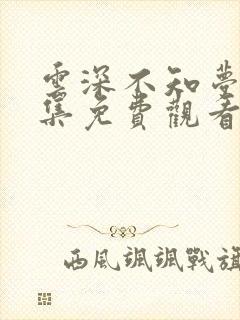 雲深不知夢
集免費觀看
西風颯颯戰旗